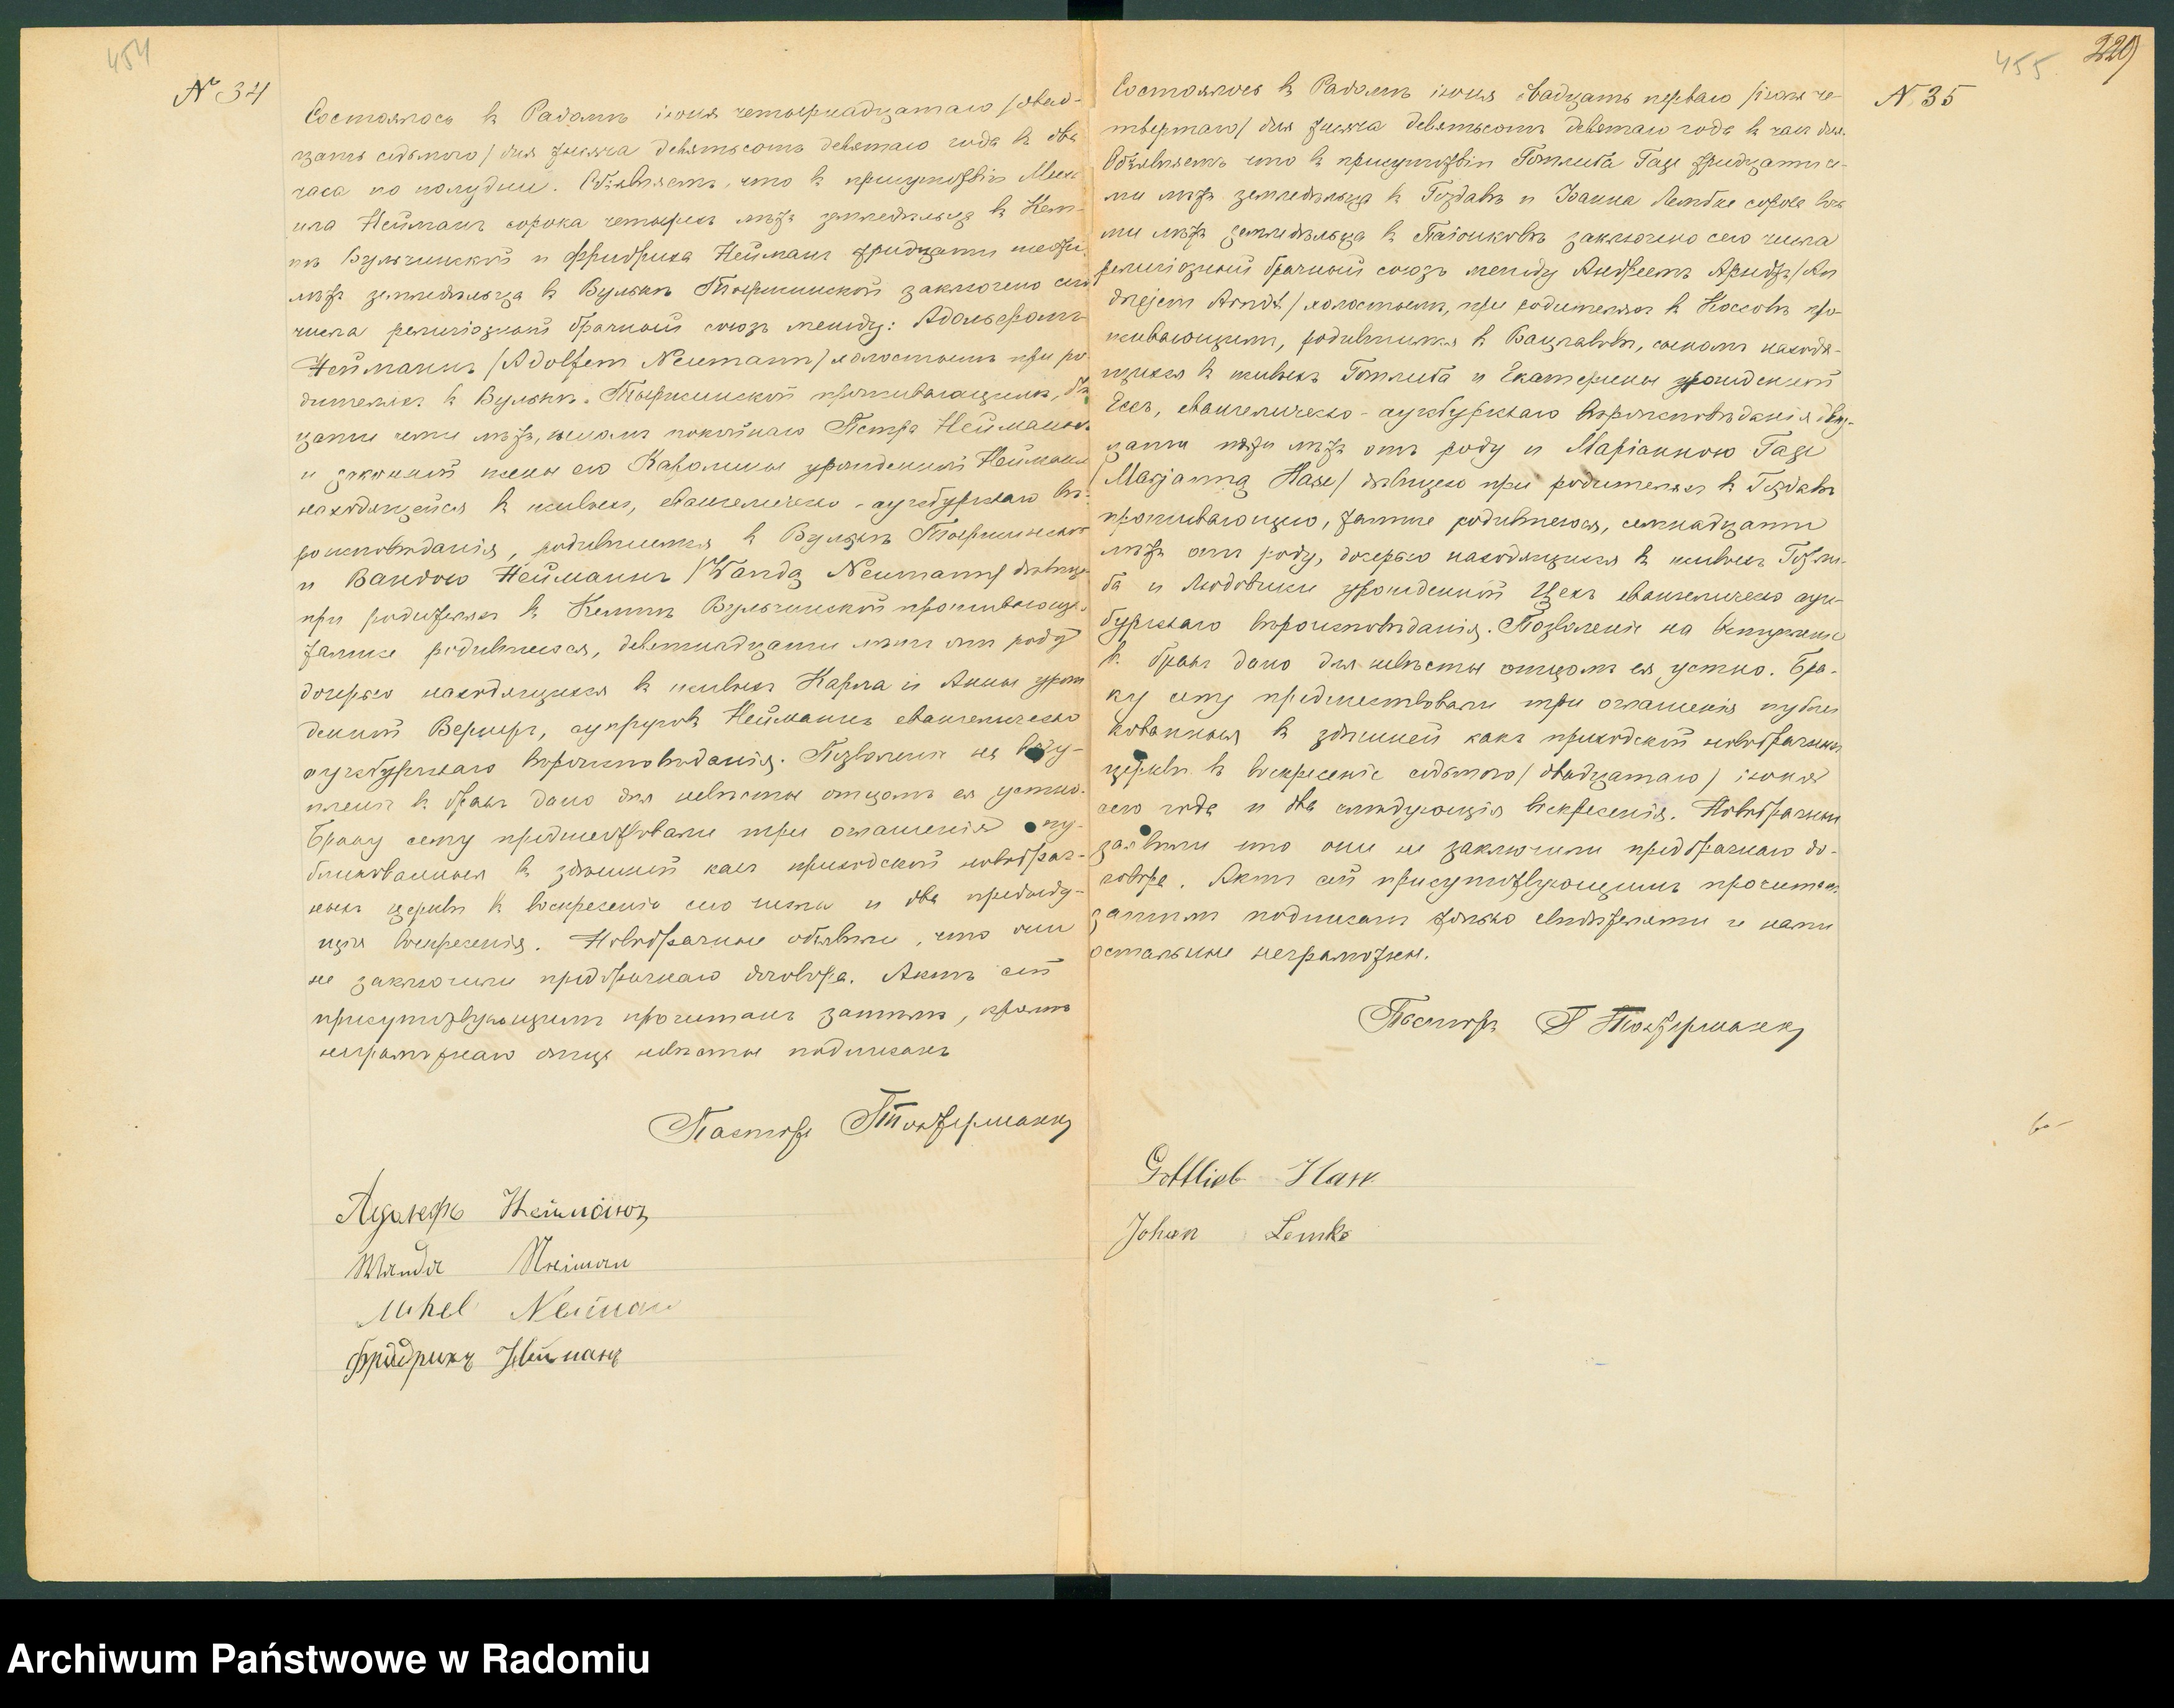 454
№ 34
Состоялось в Радоме іюня четырнадцатаго /двад-
цать седьмого/ дня тысяча девятьсотъ девятаго года в два
часа по полудни. Объявляемъ, что в присутствіи Миха
ила Нейманъ сорока четырехъ летъ земледельца в Кем-
пе Вульчинской и Фридриха Нейманъ тридцати шести
летъ земледельца в Вульке Тыржинской заключено сего
числа религіозный брачный союзъ между: Адольфомъ
Нейманнъ /Adolfem Neumann/ холостымъ при ро
дителяхъ в Вульке Тыржинской проживающимъ, два
цати летъ, сыномъ покойнаго Петра Нейманнъ
и законной жены его Каролины урожденной Нейманъ
находящейся в живыхъ, евангелическо-аугсбургскаго ве-
роисповеданія, родившемся в Вульке Тыржинской
и Вандою Нейманнъ /Wandą Neumann/ девицею
при родителяхъ в Кемпе Вульчинской проживающею
тамже родившеюся, девятнадцати летъ отъ роду
дочерью находящихся в живыхъ Карла и Анны урож
денной Вернеръ, супруговъ Нейманнъ евангелическо
аугсбургскаго вероисповеданія. Позволеніе на всту-
пленіе в бракъ дано для невесты отцомъ ея устно.
Браку сему предшествовали три оглашенія пу-
бликованныя в здешней какъ приходской новобрач-
ныхъ церкви в воскресеніе сего числа и два предыду-
щія воскресенія. Новобрачные объявили, что они
не заключили предбрачнаго договора. Актъ сей
присутствующимъ прочитанъ затемъ, кроме
неграмотнаго отца невесты подписанъ
Пасторъ Тохтерманъ
Адольфъ Нейманнъ
Wanda Neiman
Mihel Neiman
Фридрихъ Нейманъ
455
229
N 35
Состоялось в Радоме іюня двадцать перваго /іюля че-
твертаго/ дня тысяча девятьсотъ девятаго года в часъ дня.
Объявляемъ что в присутствіи Готлиба Газе тридцати се-
ми летъ земледельца в Гоздаве и Іоанна Лембке сорока вось
ми летъ земледельца в Паіонкове заключено сего числа
религіозный брачный союзъ между Андреемъ Арндтъ /An
drejem Arndt/ холостымъ, при родителяхъ в Коссове про-
живающимъ, родившимся в Вацлавове, сыномъ находя-
щихся в живыхъ Готлиба и Екатерины урожденной
Ессъ, евангелическо-аугсбургскаго вероисповеданія двад-
цати пяти летъ отъ роду и Маріанною Газе
/Marjanną Hase/ девицею при родителяхъ в Гоздаве
проживающею, тамже родившеюся, семнадцати
летъ отъ роду, дочерью находящихся в живыхъ Готли-
ба и Людовики урожденной Цехъ евангелическо аугс-
бургскаго вероисповеданія. Позволеніе на вступленіе
в бракъ дано для невесты отцомъ ея устно. Бра-
ку сему предшествовали три оглашенія публи
кованныя в здешней какъ приходской новобрачныхъ
церкви в воскресеніе седьмого /двадцатаго/ іюня
сего года и два следующія воскресенія. Новобрачные
заявили что они не заключили предбрачнаго до-
говора. Актъ сей присутствующимъ прочитанъ
затемъ подписанъ только свидетелями и нами
остальные неграмотны.
Пасторъ Г Тохтерманъ
Gottlieb Hase
Johan Lemke
Archiwum Państwowe w Radomiu